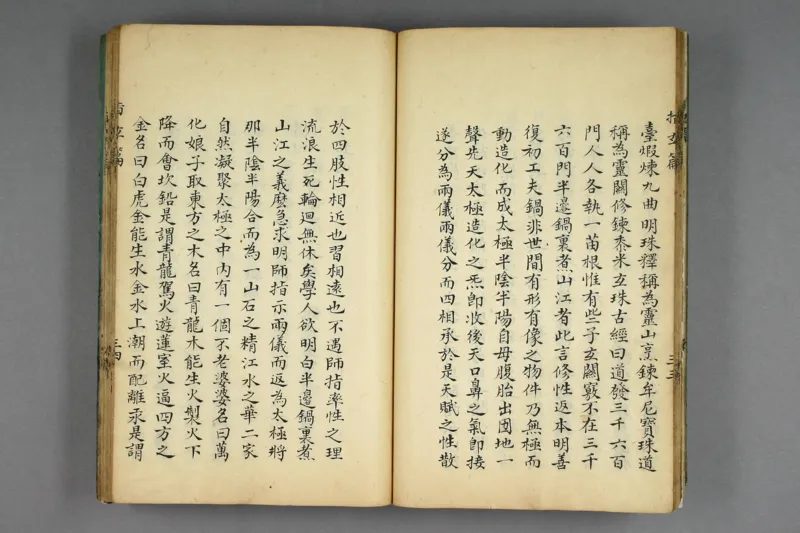 臺煆煉九曲明珠釋稱為靈山烹鍊牟尼寶珠道
稱為靈關修鍊黍米玄珠古經曰道發三千六百
門人人各執一苗根惟有些子玄關竅不在三千
六百門半邊鍋裏煮山江者此言修性返本明善
復初工夫鍋非世間有形有像之物件乃無極而
動造化而成太極半陰半陽自母腹胎出囤地一
聲先天太極造化之炁卽收後天口鼻之氣卽接
遂分為兩儀兩儀分而四相承於是天賦之性散
於四肢性相近也習相遠也不遇師指率性之理
流浪生死輪迴無休矣學人欲明白半邊鍋裏煮
山江之義麽急求明師指示兩儀而返為太極將
那半陰半陽合而為一山石之精江水之華二家
自然凝聚太極之中內有一個不老婆婆名曰萬
化娘子取東方之木名曰青龍木能生火製火下
降而會坎鉛是謂青龍駕火遊蓮室火逼四方之
金名曰白虎金能生水金水上潮而配離汞是謂
指玄篇
三三
指玄篇
三四